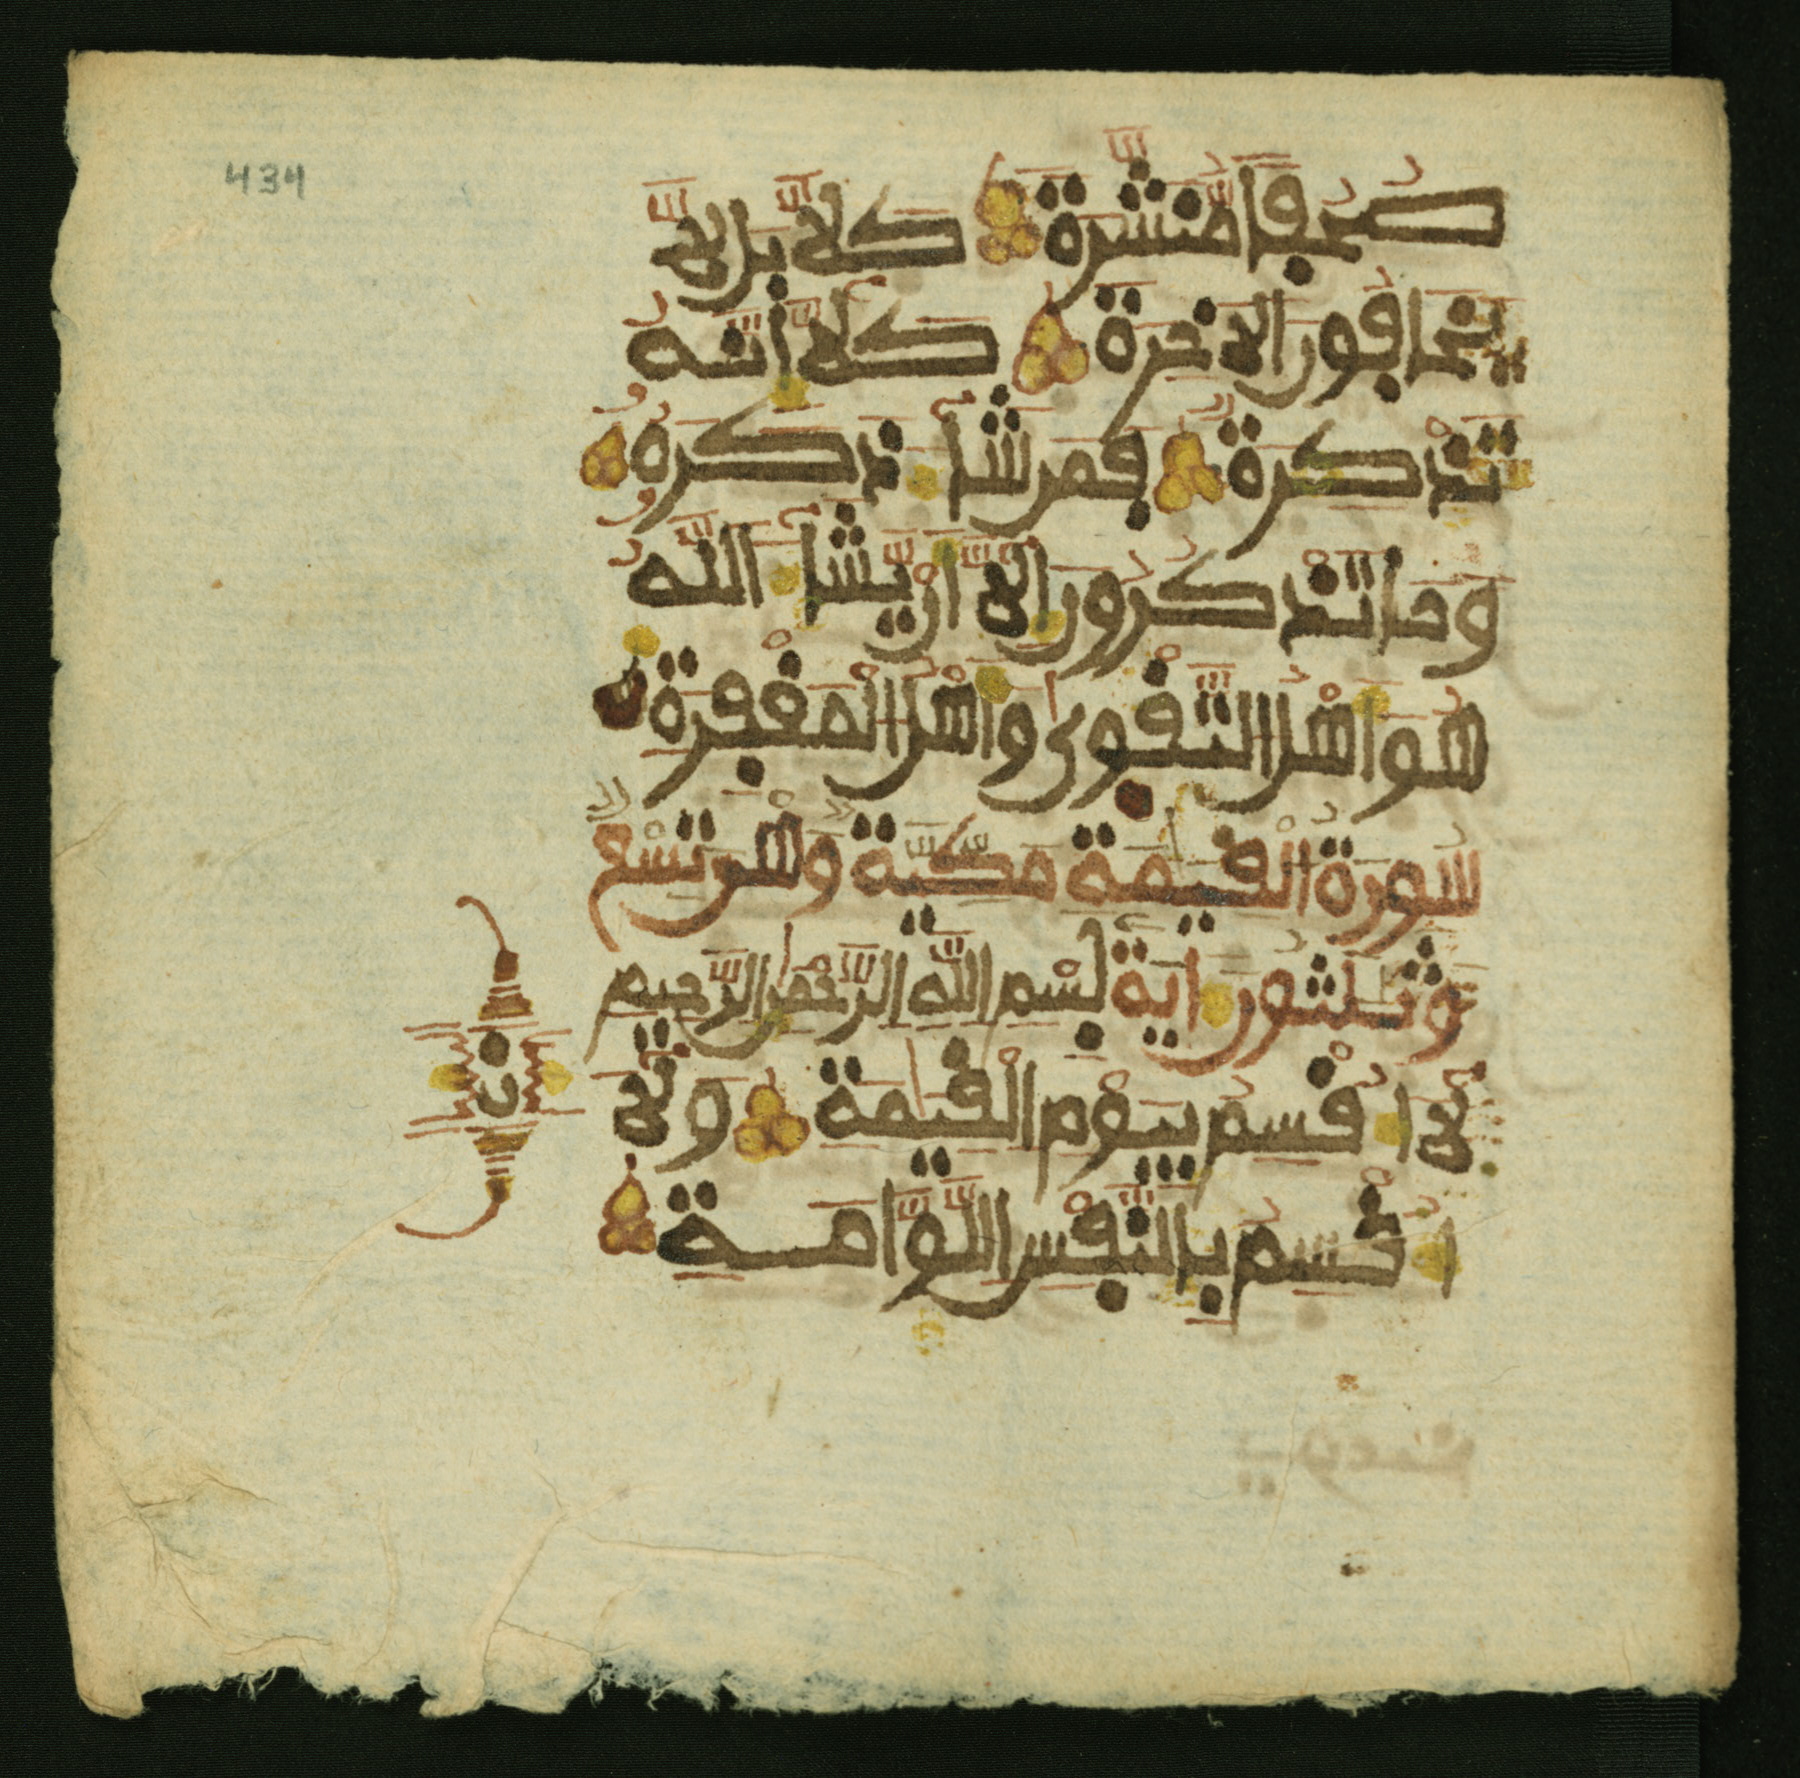 434
صحفا منشرة كلا بل لا
يخافون الاخرة كلا انه
تذكرة فمن شا ذكره
وما تذكرون الا ان يشا الله
هو اهل التقوى واهل المغفرة
سورة القيمة مكية وهي تسع
وثلثون اية بسم الله الرحمن الرحيم
لا اقسم بيوم القيمة ولا
اقسم بالنفس اللوامة